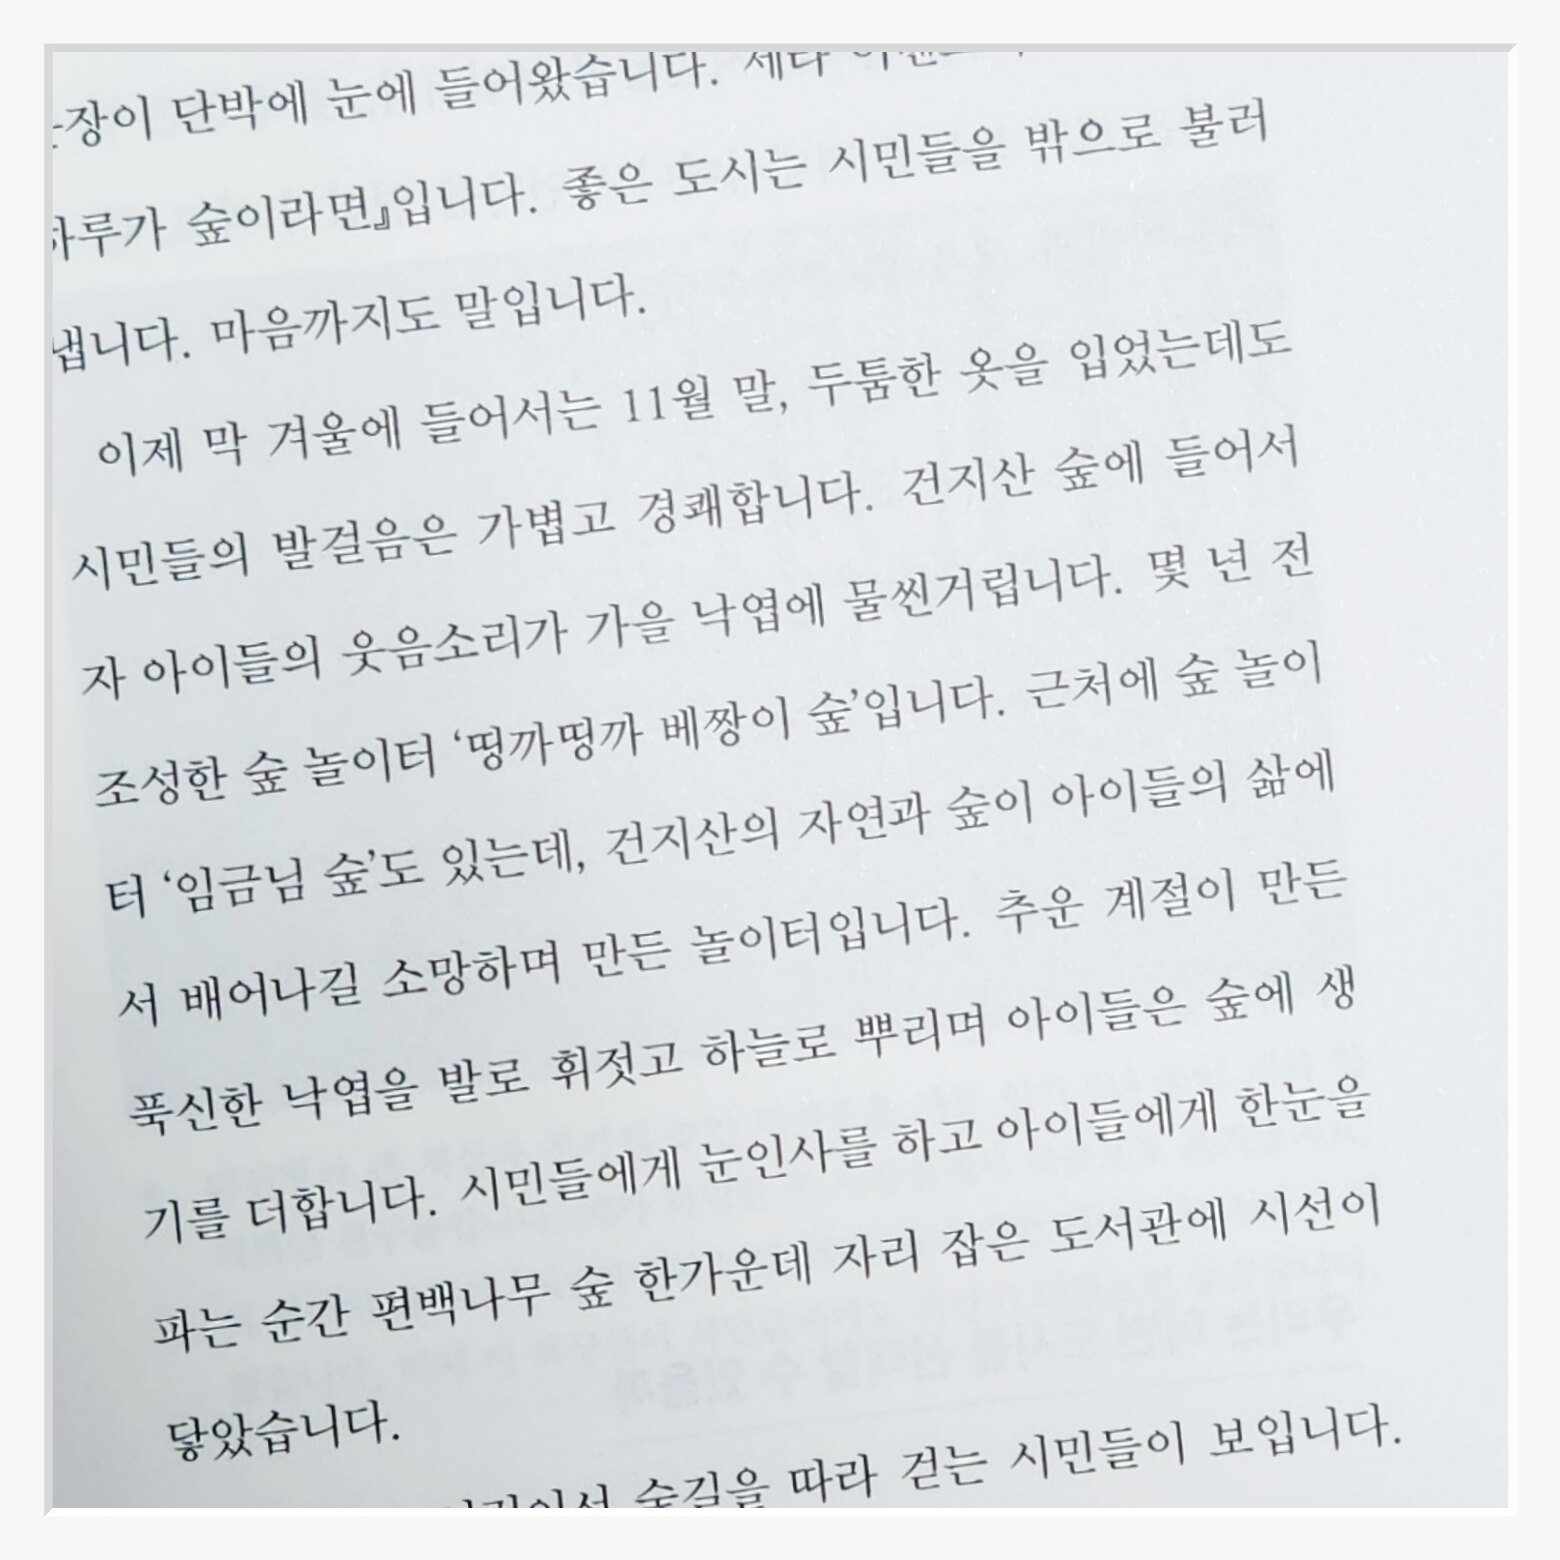 단박에 눈에 들어왔습니다.
숲이라면』입니다. 좋은 도시는 시민들을 밖으로 불러
냅니다. 마음까지도 말입니다.
이제 막 겨울에 들어서는 11월 말, 두툼한 옷을 입었는데도
시민들의 발걸음은 가볍고 경쾌합니다. 건지산 숲에 들어서
자 아이들의 웃음소리가 가을 낙엽에 물씬거립니다. 몇 년 전
조성한 숲 놀이터 ‘띵까띵까 베짱이 숲’입니다. 근처에 숲 놀이
터 ‘임금님 숲’도 있는데, 건지산의 자연과 숲이 아이들의 삶에
서 배어나길 소망하며 만든 놀이터입니다. 추운 계절이 만든
푹신한 낙엽을 발로 휘젓고 하늘로 뿌리며 아이들은 숲에 생
기를 더합니다. 시민들에게 눈인사를 하고 아이들에게 한눈을
파는 순간 편백나무 숲 한가운데 자리 잡은 도서관에 시선이
닿았습니다.
숲길을 따라 걷는 시민들이 보입니다.